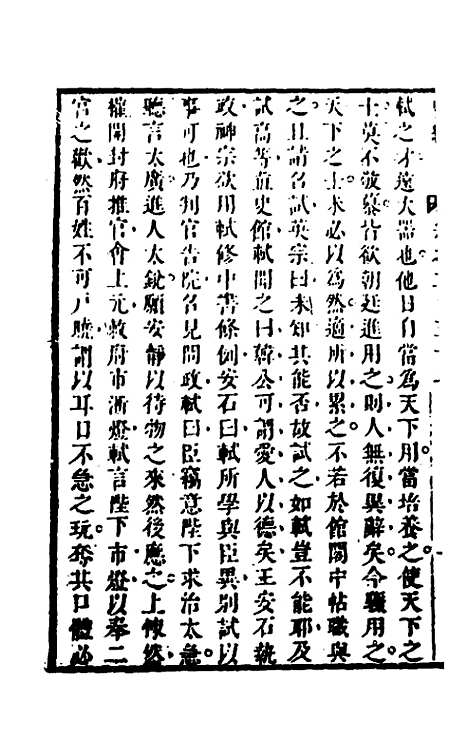 軾之才遠大器也他日自當為天下用當培養之使天下之
士莫不波慕皆欲朝廷進用之則人無復異辭矣今驟用之
天下之士未必以為然適所以累之不若於館閣中帖職與
之且請名試英宗曰未知其能否故試之如軾豈不能耶及
試高等直史館軾聞之曰韓公可謂愛人以德矣王安石執
政神宗欲用軾修中書條例安石曰軾所學與臣異別試以
事可也乃判官告院名見問政軾曰臣竊意陛下求治太急
聽言太廣進人太銳願安靜以待物之來然後應之上悚然
權開封府推官會上元敕府市浙燈軾言陛下市燈以奉二
宮之歡然百姓不可戶曉謂以耳目不急之玩奪其口體必